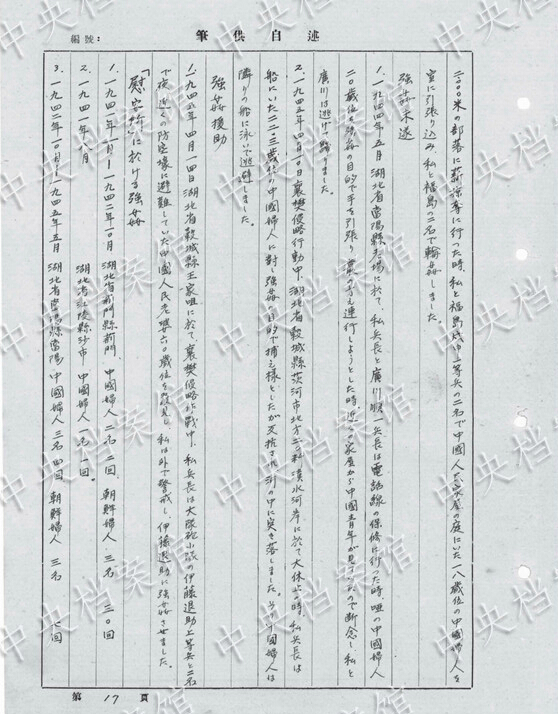 筆供自述
編號:
二〇〇〇米の部落に薪掠奪に行った時、私と福島茂中上等兵の二名で中國人家屋の庭にいた一八歳位の中國婦人を
室に引張り込み、私と福島の二名で輪姦しました。
強姦未遂
1. 一九四四年五月 湖北省當陽縣老場に於て、私兵長と廣川順一兵長は電話線の保修に行った時、唖の中國婦人
二〇歳位を強姦の目的で手を引張り裏の方え連行しようとした時、近くの家屋から中國青年が見ていたので断念し、私と
廣川は逃げて帰りました。
2. 一九四五年四月一〇日 襄樊侵略行動中、湖北省穀城縣茨河市地方の漢水河岸に於て大休止の時、私兵長は
船にいた二二、三歳位の中國婦人に對し強姦の目的で捕え様としたが反抗され河の中に突き落しました。その中國婦人は
隣りの船に泳いで逃避しました。
強姦援助
1. 一九四五年四月一四日 湖北省穀城縣王家咀に於て襄樊侵略作戰中、私兵長は大隊砲小隊の伊藤退助上等兵と二名
で夜近くの防空壕に避難していた中國人民老婆六〇歳位を發見し、私は外で警戒し、伊藤退助に強姦させました。
「慰安所」に於ける強姦
1. 一九四一年 月－一九四二年一〇月 湖北省荊門縣荊門、中國婦人 二名 二回、朝鮮婦人 三〇回
2. 一九四一年八月 湖北省江陵縣沙市 中國婦人 一名 一回。
3. 一九四二年一〇月－一九四五年五月 湖北省當陽縣當陽 中國婦人 三名 四回 朝鮮婦人 三名 七回
第 17 頁
中央档案馆